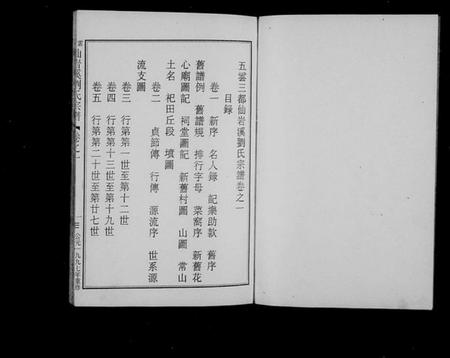 五雲三都仙岩溪劉氏宗譜卷之一
目録
卷一　新序　名人録　記樂助款　舊序
舊譜例　舊譜規　排行字母　菜窩序　新舊花
心廟圖記　祠堂圖記　新舊村圖　山圖　常山
土名　祀田丘段　墳圖
卷二　貞節傳　行傳　源流序　世系源
流支圖
卷三　行第第一世至第十二世
卷四　行第第十三世至第十九世
卷五　行第第二十世至第廿七世
仙岩溪劉氏宗譜　卷之一　公元一九九七年重修